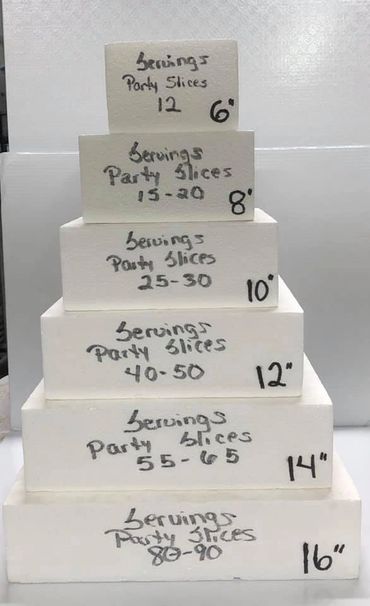 Servings
Party Slices
12
6"
Servings
Party Slices
15-20
8"
Servings
Party Slices
25-30
10"
Servings
Party Slices
40-50
12"
Servings
Party Slices
55-65
14"
Servings
Party Slices
80-90
16"